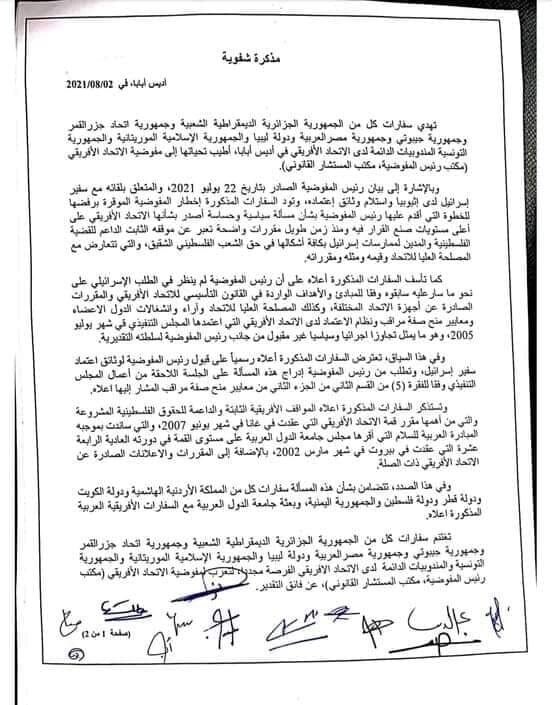 مذكرة شفوية
أديس أبابا، في 2021/08/02
تهدي سفارات كل من الجمهورية الجزائرية الديمقراطية الشعبية وجمهورية اتحاد جزرالقمر
وجمهورية جيبوتي وجمهورية مصرالعربية ودولة ليبيا والجمهورية الإسلامية الموريتانية والجمهورية
التونسية المندوبيات الدائمة لدى الاتحاد الأفريقي في أديس أبابا، أطيب تحياتها إلى مفوضية الاتحاد الأفريقي
(مكتب رئيس المفوضية، مكتب المستشار القانوني).
وبالإشارة إلى بيان رئيس المفوضية الصادر بتاريخ 22 يوليو 2021، والمتعلق بلقائه مع سفير
إسرائيل لدى إثيوبيا واستلام وثائق إعتماده، وتود السفارات المذكورة إخطار المفوضية الموقرة برفضها
للخطوة التي أقدم عليها رئيس المفوضية بشأن مسألة سياسية وحساسة أصدر بشأنها الاتحاد الأفريقي على
أعلى مستويات صنع القرار فيه ومنذ زمن طويل مقررات واضحة تعبر عن موقفه الثابت الداعم للقضية
الفلسطينية والمدين لممارسات إسرائيل بكافة أشكالها في حق الشعب الفلسطيني الشقيق، والتي تتعارض مع
المصلحة العليا للاتحاد وقيمه ومثله ومقرراته.
كما تأسف السفارات المذكورة أعلاه على أن رئيس المفوضية لم ينظر في الطلب الإسرائيلي على
نحو ما سارعليه سابقوه وفقا للمبادئ والأهداف الواردة في القانون التأسيسي للاتحاد الأفريقي والمقررات
الصادرة عن أجهزة الاتحاد المختلفة، وكذلك المصلحة العليا للاتحاد وآراء وانشغالات الدول الاعضاء
ومعايير منح صفة مراقب ونظام الاعتماد لدى الاتحاد الأفريقي التي اعتمدها المجلس التنفيذي في شهر يوليو
2005، وهو ما يمثل تجاوزا اجرائيا وسياسيا غير مقبول من جانب رئيس المفوضية لسلطته التقديرية.
وفي هذا السياق، تعترض السفارات المذكورة أعلاه رسمياً على قبول رئيس المفوضية لوثائق اعتماد
سفير إسرائيل، وتطلب من رئيس المفوضية إدراج هذه المسألة على الجلسة اللاحقة من أعمال المجلس
التنفيذي وفقا للفقرة (5) من القسم الثاني من الجزء الثاني من معايير منح صفة مراقب المشار إليها اعلاه.
وتستذكر السفارات المذكورة اعلاه المواقف الأفريقية الثابتة والداعمة للحقوق الفلسطينية المشروعة
والتي من أهمها مقرر قمة الاتحاد الأفريقي التي عقدت في غانا في شهر يونيو 2007، والتي ساندت بموجبه
المبادرة العربية للسلام التي أقرها مجلس جامعة الدول العربية على مستوى القمة في دورته العادية الرابعة
عشرة التي عقدت في بيروت في شهر مارس 2002، بالإضافة إلى المقررات والاعلانات الصادرة عن
الاتحاد الأفريقي ذات الصلة.
وفي هذا الصدد، تتضامن بشأن هذه المسألة سفارات كل من المملكة الأردنية الهاشمية ودولة الكويت
ودولة قطر ودولة فلسطين والجمهورية اليمنية، وبعثة جامعة الدول العربية مع السفارات الأفريقية العربية
المذكورة اعلاه.
تغتنم سفارات كل من الجمهورية الجزائرية الديمقراطية الشعبية وجمهورية اتحاد جزرالقمر
وجمهورية جيبوتي وجمهورية مصرالعربية ودولة ليبيا والجمهورية الإسلامية الموريتانية والجمهورية
التونسية والمندوبيات الدائمة لدى الاتحاد الافريقي الفرصة مجددا، لتعرب لمفوضية الاتحاد الأفريقي (مكتب
رئيس المفوضية، مكتب المستشار القانوني)، عن فائق التقدير.
(صفحة 1 من 2)